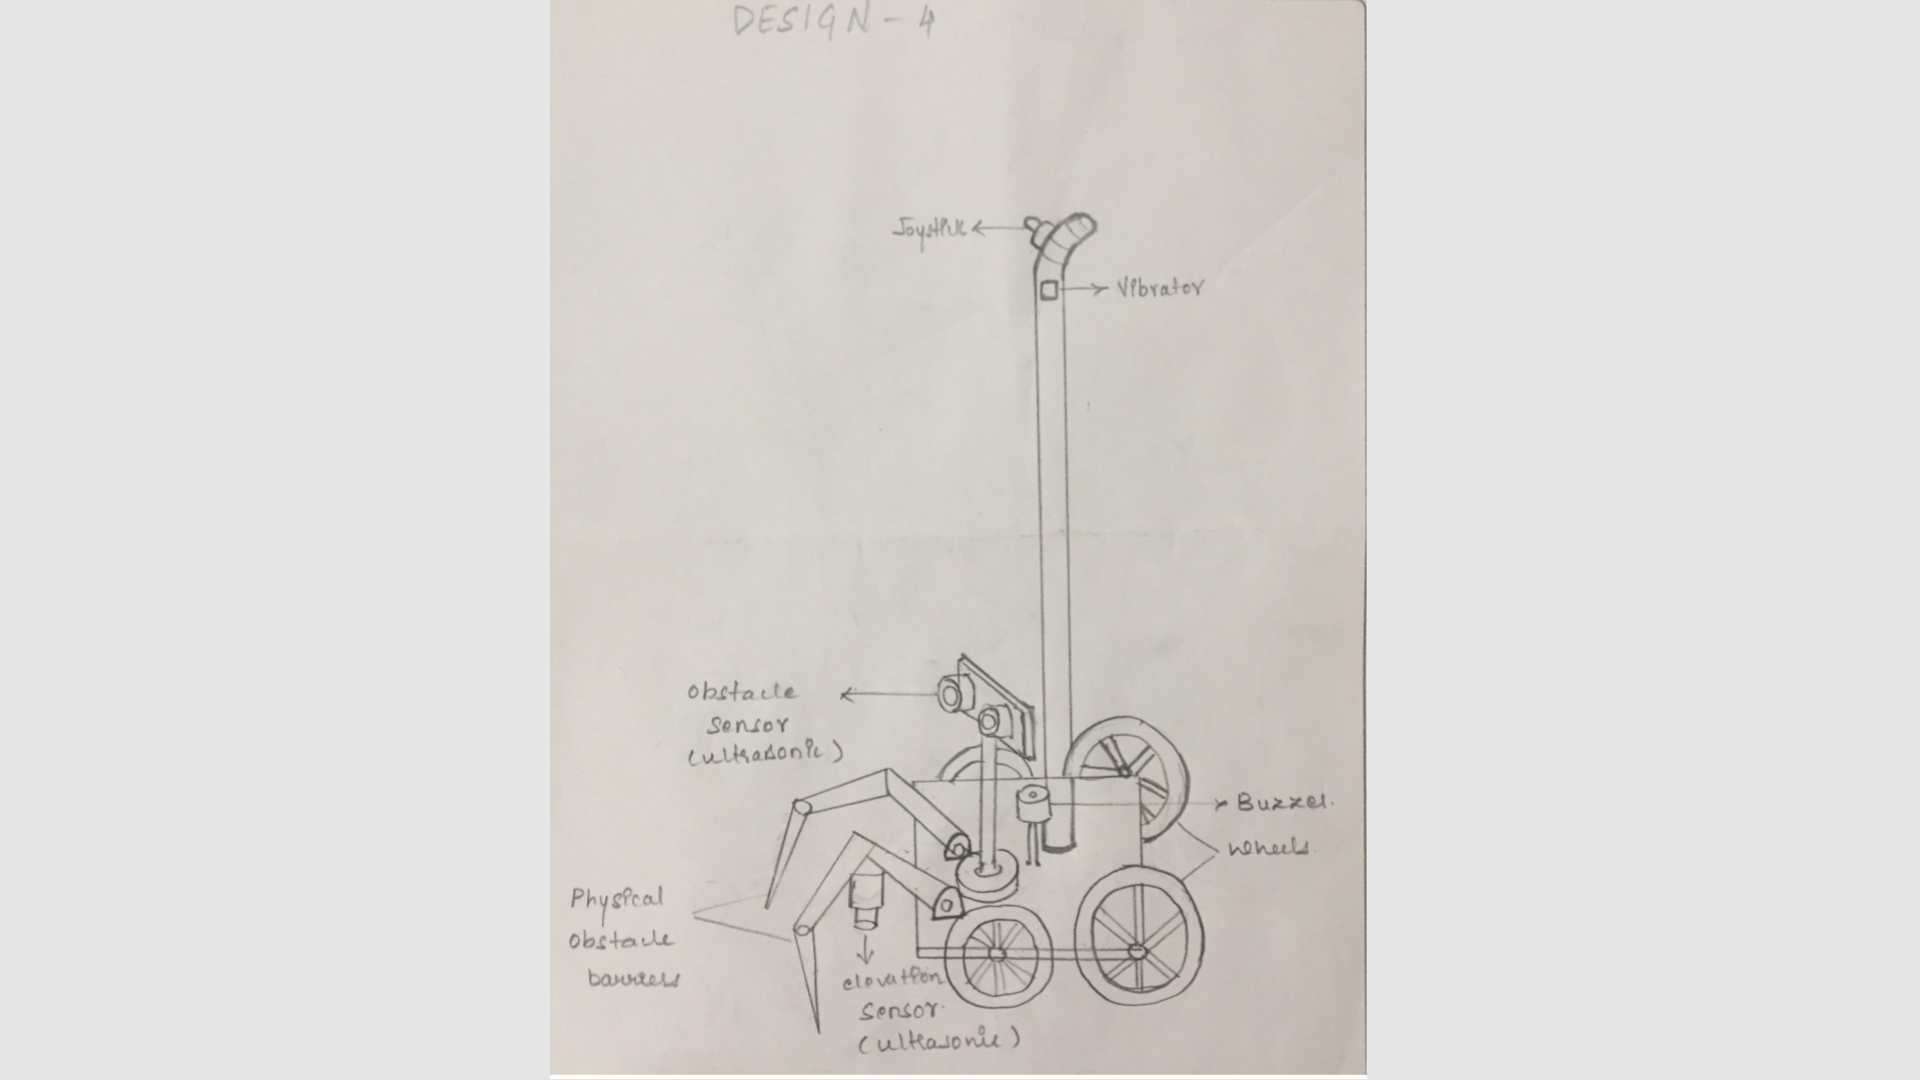 DESIGN - 4
Joystick
Vibrator
Obstacle
sensor
(ultrasonic)
Buzzer.
wheels
Physical
Obstacle
barriers
elevation
sensor.
(ultrasonic)